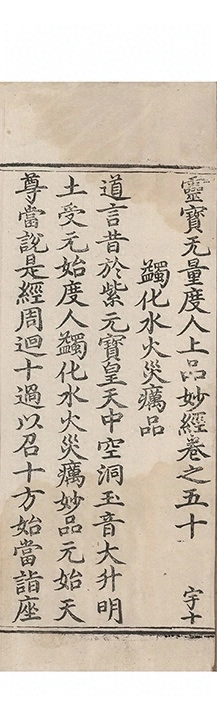 靈寳无量度人上品妙經卷之五十
宇十
蠲化水火災癘品
道言昔於紫元寳皇天中空洞玉音大升明
土受元始度人蠲化水火災癘妙品元始天
尊當說是經周迴十過以召十方始當詣座